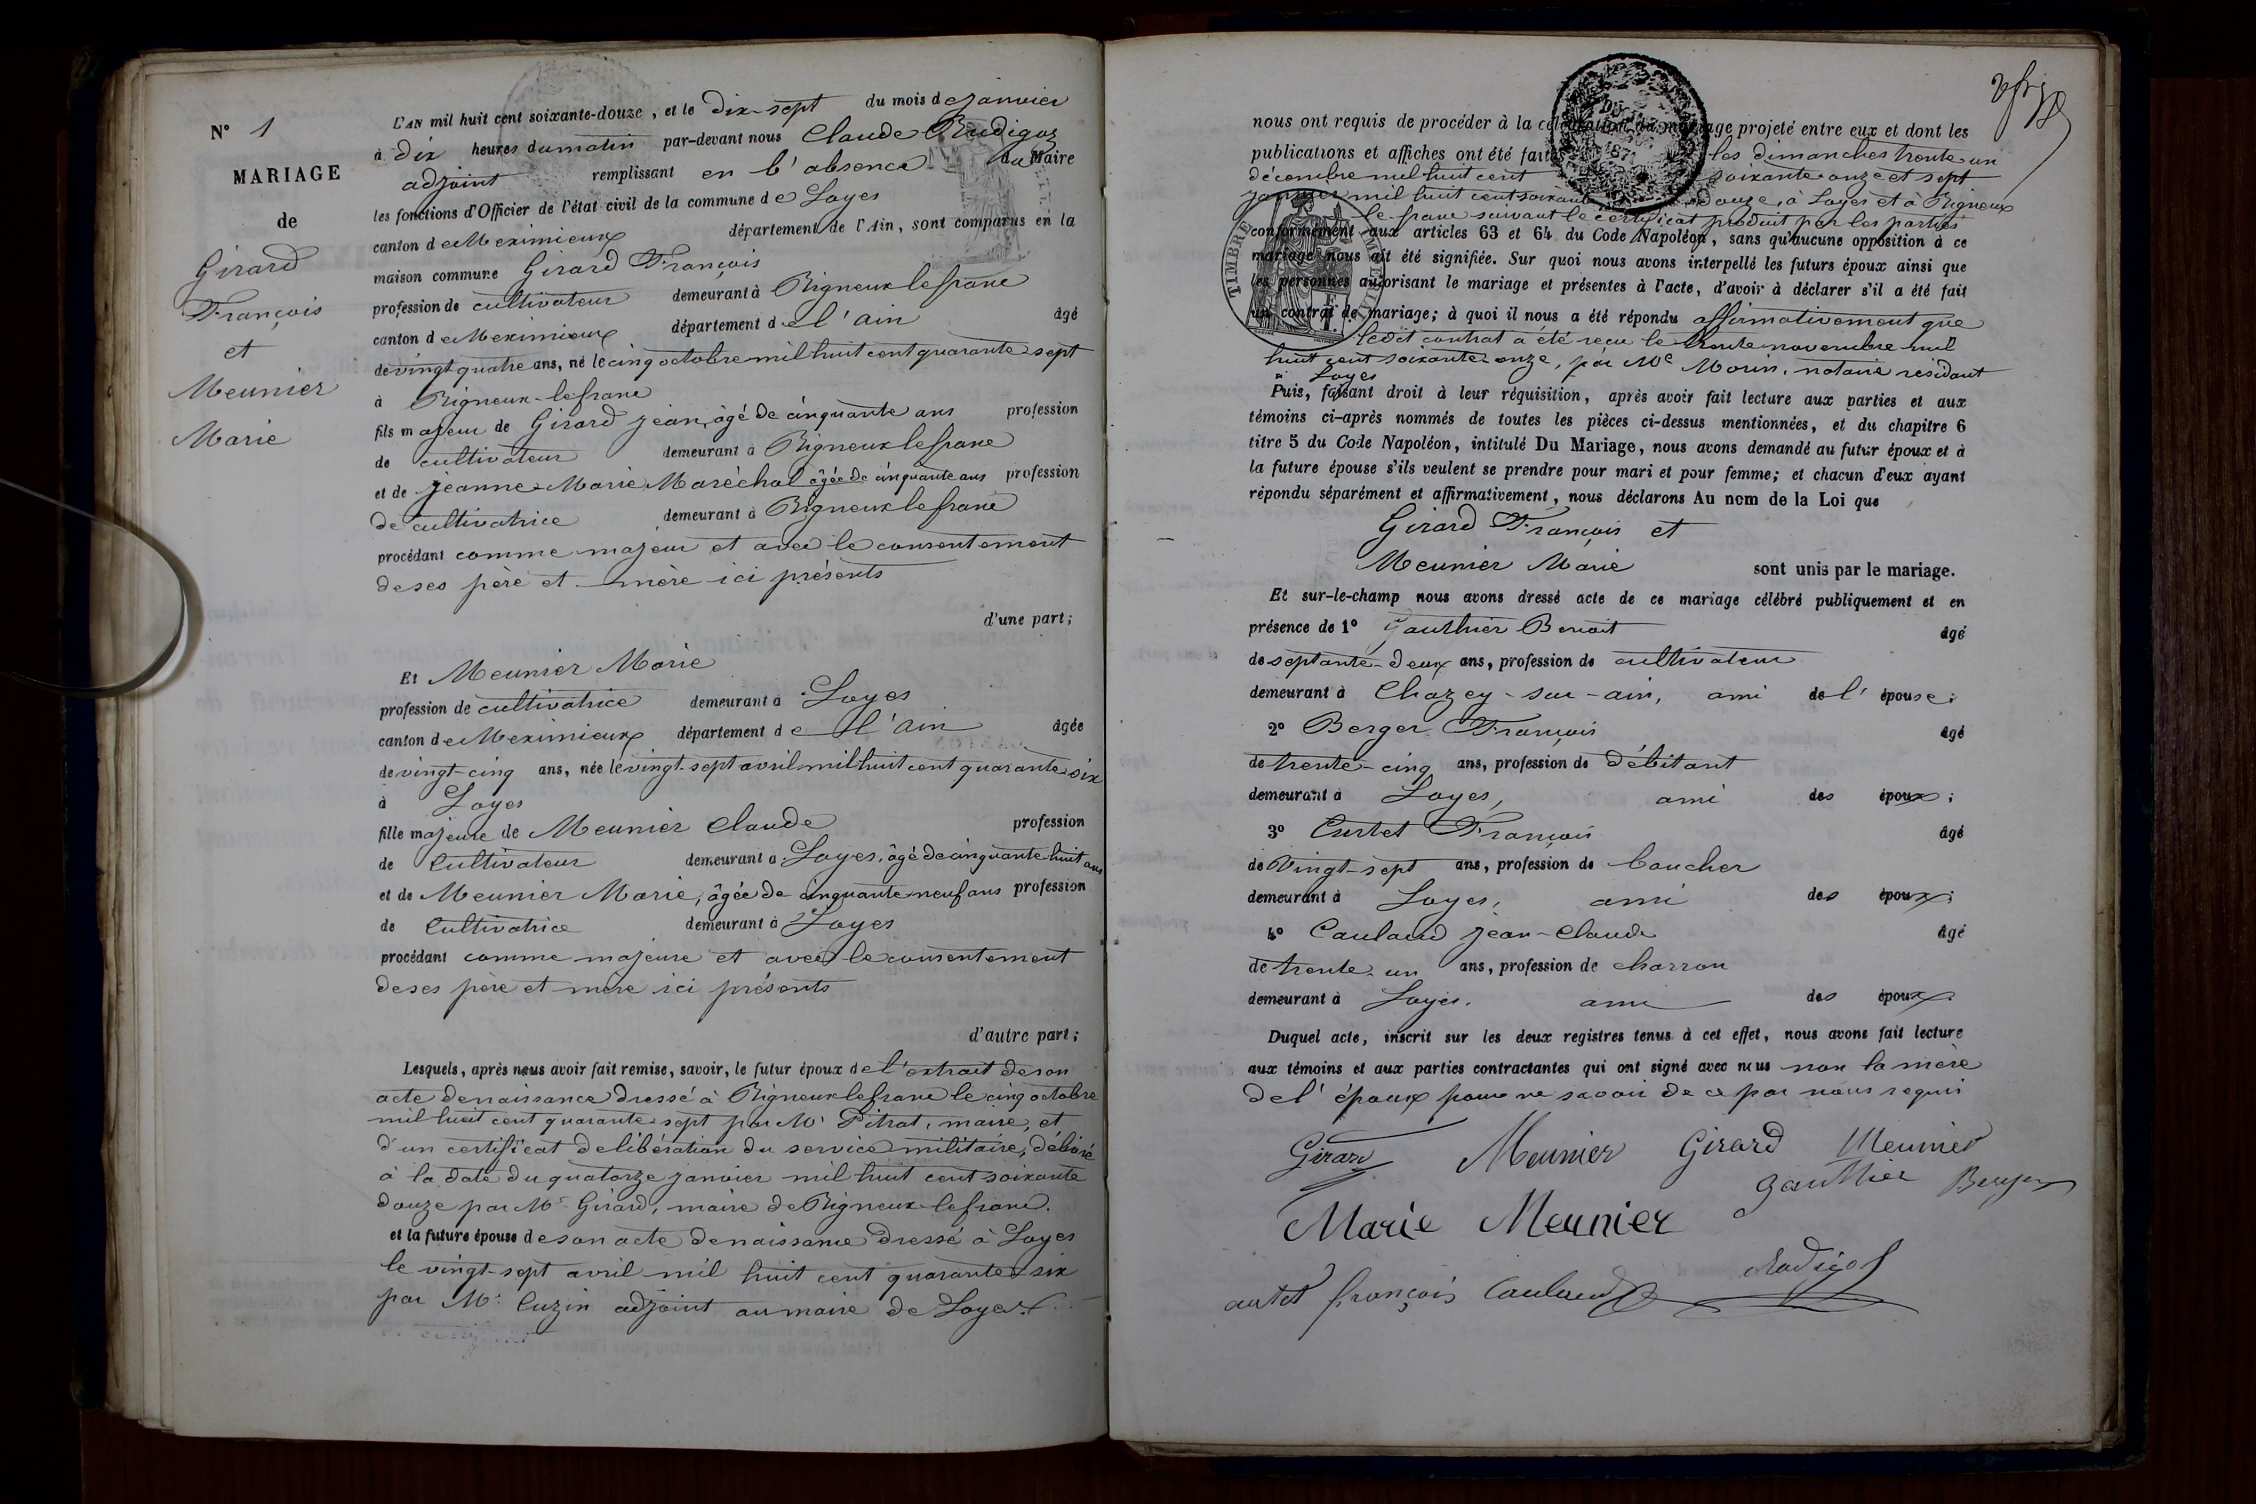 N° 1
MARIAGE
de
Girard
François
et
Meunier
Marie
L'AN mil huit cent soixante-douze, et le dix-sept du mois de janvier
à dix heures du matin par-devant nous Claude Rudigoz
adjoint remplissant en l'absence du Maire
les fonctions d'Officier de l'état civil de la commune de Loyes
canton de Meximieux département de l'Ain, sont comparus en la
maison commune Girard François
profession de cultivateur demeurant à Rigneux le franc
canton de Meximieux département de l'ain âgé
de vingt quatre ans, né le cinq octobre mil huit cent quarante sept
à Rigneux-le franc
fils majeur de Girard jean, âgé de cinquante ans profession
de cultivateur demeurant à Rigneux le franc
et de jeanne Marie Maréchal âgée de cinquante ans profession
de cultivatrice demeurant à Rigneux le franc
procédant comme majeur et avec le consentement
de ses père et mère ici présents
d'une part;
Et Meunier Marie
profession de cultivatrice demeurant à Loyes
canton de Meximieux département de l'ain âgée
de vingt-cinq ans, née le vingt-sept avril mil huit cent quarante six
à Loyes
fille majeure de Meunier Claude profession
de Cultivateur demeurant à Loyes, âgé de cinquante huit ans
et de Meunier Marie, âgée de cinquante neuf ans profession
de Cultivatrice demeurant à Loyes
procédant comme majeure et avec le consentement
de ses père et mère ici présents
d'autre part;
Lesquels, après nous avoir fait remise, savoir, le futur époux de l'extrait de son
acte de naissance dressé à Rigneux le franc le cinq octobre
mil huit cent quarante sept par Mr Pitrat, maire, et
d'un certificat de libération du service militaire, délivré
à la date du quatorze janvier mil huit cent soixante
douze par Mr Girard, maire de Rigneux le franc.
et la future épouse de son acte de naissance dressé à Loyes
le vingt-sept avril mil huit cent quarante six
par Mr Cuzin adjoint au maire de Loyes
nous ont requis de procéder à la célébration du mariage projeté entre eux et dont les
publications et affiches ont été faites les dimanches trente un
décembre mil huit cent soixante onze et sept
janvier mil huit cent soixante douze, à Loyes et à Rigneux
le franc suivant le certificat produit par les parties
conformément aux articles 63 et 64 du Code Napoléon, sans qu'aucune opposition à ce
mariage nous ait été signifiée. Sur quoi nous avons interpellé les futurs époux ainsi que
les personnes autorisant le mariage et présentes à l'acte, d'avoir à déclarer s'il a été fait
un contrat de mariage; à quoi il nous a été répondu affirmativement que
ledit contrat a été reçu le trente novembre mil
huit cent soixante onze, par Me Morin, notaire résidant
à Loyes
Puis, faisant droit à leur réquisition, après avoir fait lecture aux parties et aux
témoins ci-après nommés de toutes les pièces ci-dessus mentionnées, et du chapitre 6
titre 5 du Code Napoléon, intitulé Du Mariage, nous avons demandé au futur époux et à
la future épouse s'ils veulent se prendre pour mari et pour femme; et chacun d'eux ayant
répondu séparément et affirmativement, nous déclarons Au nom de la Loi que
Girard François et
Meunier Marie sont unis par le mariage.
Et sur-le-champ nous avons dressé acte de ce mariage célébré publiquement et en
présence de 1° Gauthier Benoit âgé
de septante-deux ans, profession de cultivateur
demeurant à Chazey-sur-ain, ami de l'épouse;
2° Berger François âgé
de trente-cinq ans, profession de débitant
demeurant à Loyes, ami des époux;
3° Curtet François âgé
de Vingt-sept ans, profession de boucher
demeurant à Loyes, ami des époux;
4° Cauland jean-Claude âgé
de trente-un ans, profession de charron
demeurant à Loyes. ami des époux.
Duquel acte, inscrit sur les deux registres tenus à cet effet, nous avons fait lecture
aux témoins et aux parties contractantes qui ont signé avec nous non la mère
de l'époux pour ne savoir de ce par nous requis
Girard Meunier Girard Meunier
Gauthier Berger
Marie Meunier
Rudigoz
curtet françois Cauland
TIMBRE IMPÉRIAL